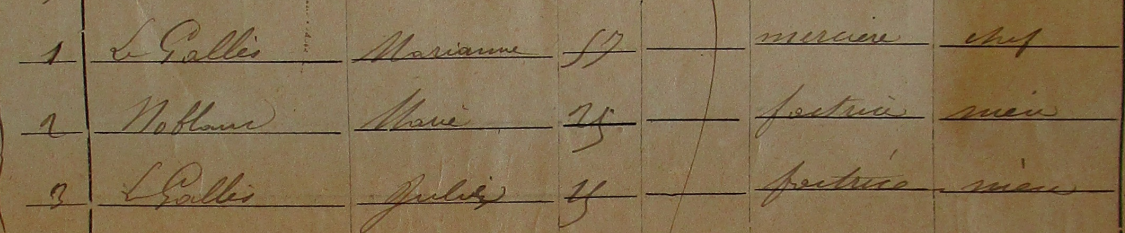 1 Le Gallès Marianne 57 mercière chef
2 Noblanc Marie 25 factrice nièce
3 Le Gallès Julie factrice nièce